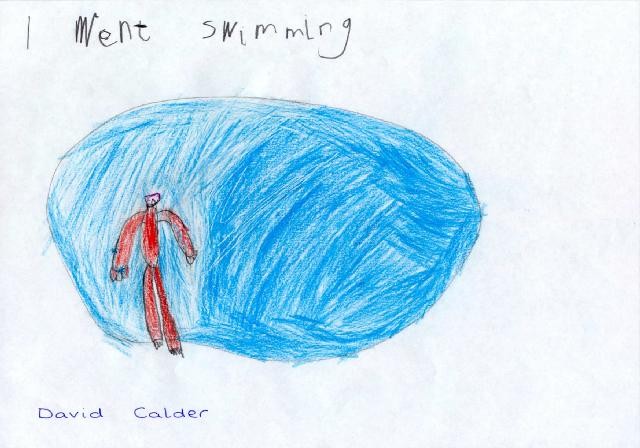 I Went swimming
David Calder